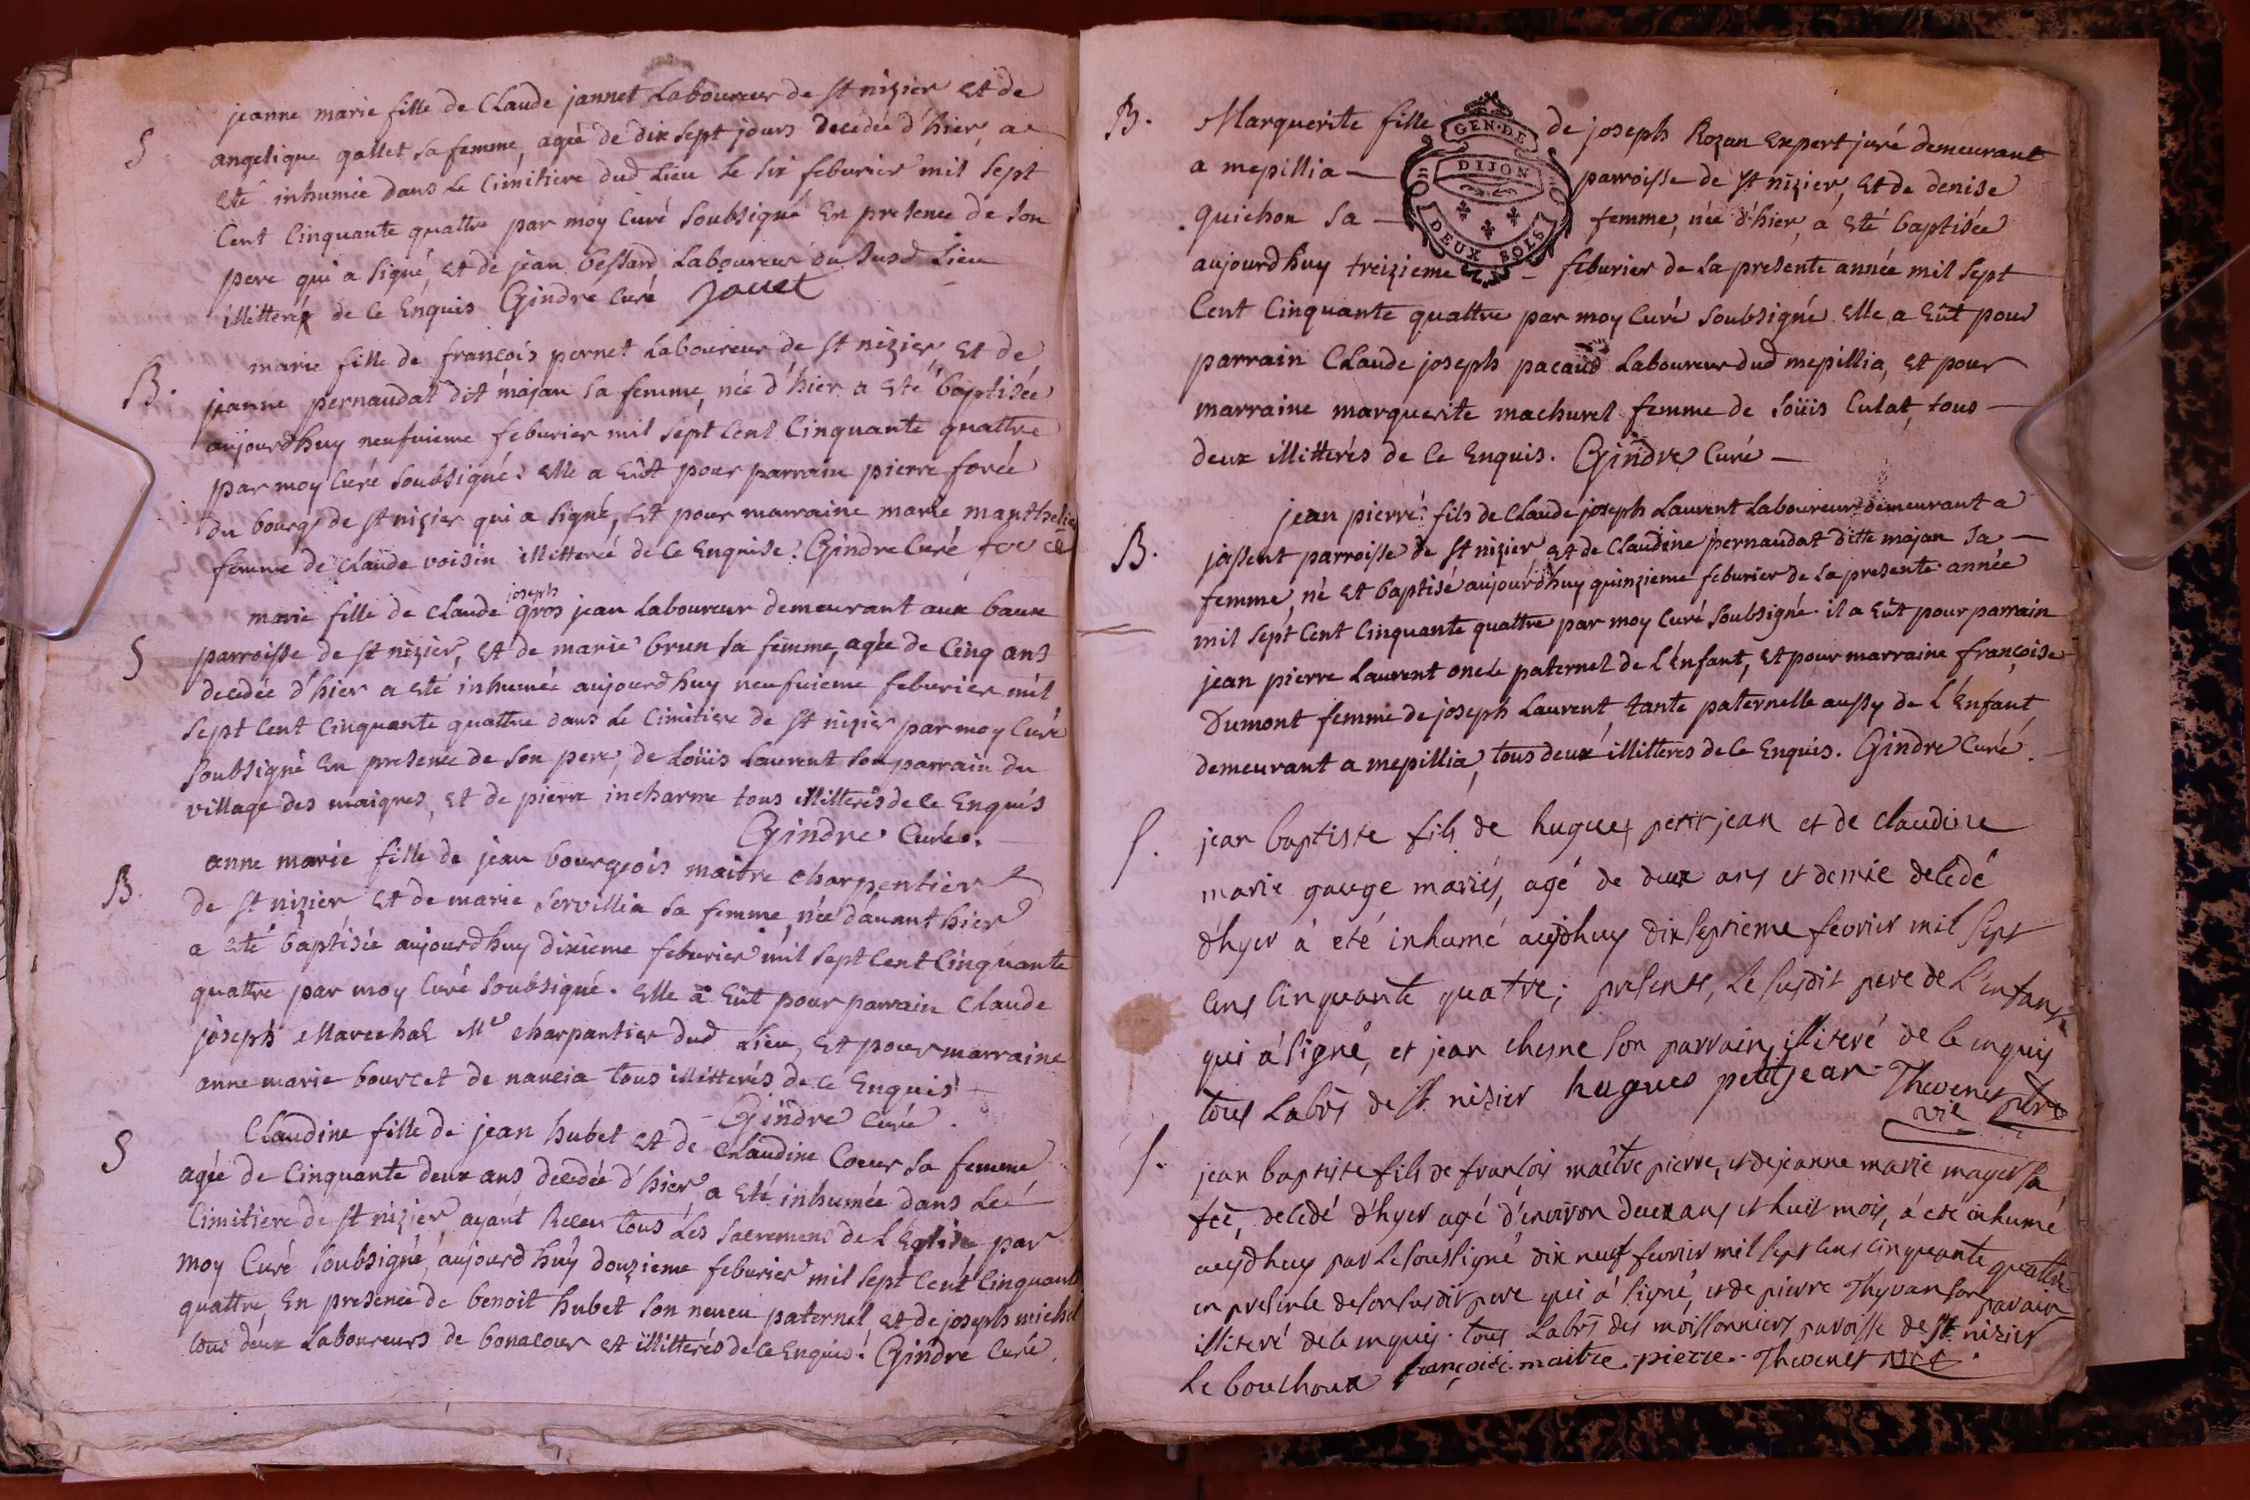 jeanne marie fille de Claude jannet Laboureur de st nizier et de
S angelique gallet sa femme, agée de dix sept jours decedée d'hier, a
eté inhumée dans le cimitiere dud Lieu le six feburier mil sept
Cent Cinquante quattre par moy Curé soubsigné En presence de son
pere qui a signé et de jean bessard Laboureur du susd Lieu
illitteré de ce Enquis Gindre Curé
B. marie fille de françois pernet Laboureur de st nizier, et de
jeanne pernaudat dit majan sa femme, née d'hier a eté baptisée
aujourdhuy neufuieme feburier mil sept Cent Cinquante quattre
par moy Curé soubsigné. elle a Eût pour parrain pierre forée
du bourg de st nizier qui a signé, et pour marraine marie manthelier
femme de Claude voisin illitterée de ce Enquise. Gindre Curé
joseph
marie fille de Claude gros jean Laboureur demeurant aux baux
S parroisse de st nizier, et de marie brun sa femme, agée de Cinq ans
decedée d'hier a eté inhumée aujourdhuy neufuieme feburier mil
sept Cent Cinquante quattre dans le Cimitiere de st nizier par moy Curé
soubsigné En presence de son pere, de Loüis Laurent son parrain du
village des maigres, et de pierre incharme tous illitterés de ce Enqués
Gindre Curé.
anne marie fille de jean bourgeois maitre charpentier
B. de st nizier et de marie servillia sa femme, née d'auant hier
a eté baptisée aujourdhuy dixieme feburier mil sept Cent Cinquante
quattre par moy Curé soubsigné. elle a Eût pour parrain Claude
joseph Marechal Me charpantier dud Lieu, et pour marraine
anne marie bourcet de naucia tous illitterés de ce Enquis
Gindre Curé.
Claudine fille de jean hubet et de Claudine Coeur sa femme
S agée de Cinquante deux ans decedée d'hier, a eté inhumée dans Le
Cimitiere de st nizier ayant Receu tous Les sacremens de L'Eglise, par
moy Curé soubsigné, aujourd'huy douzieme feburier mil sept Cent Cinquante
quattre En presence de benoit hubet son neueu paternel, et de joseph michel
tous deux Laboureurs de bonacour et illitterés de ce Enquis. Gindre Curé.
B. Marguerite fille de joseph Rozan Expert juré demeurant
a mepillia parroisse de st nizier, et de denise
quichon sa femme, née d'hier, a eté baptisée
aujourdhuy treizieme feburier de la presente année mil sept
GEN. DE
DIJON
DEUX SOLS
Cent Cinquante quattre par moy Curé soubsigné elle a Eût pour
parrain Claude joseph pacaud Laboureur dud mepillia, et pour
marraine marguerite machurel femme de Loüis Culat, tous
deux illitterés de ce Enquis. Gindre Curé
jean pierre fils de Claude joseph Laurent Laboureur demeurant a
B. jassent parroisse de st nizier et de Claudine pernaudat ditte majan sa
femme, né et baptisé aujourdhuy quinzieme feburier de la presente année
mil sept Cent Cinquante quattre par moy Curé soubsigné il a Eût pour parrain
jean pierre Laurent oncle paternel de l'Enfant, et pour marraine françoise
Dumont femme de joseph Laurent, tante paternelle aussy de L'Enfant,
demeurant a mepillia, tous deux illitteres de ce Enquis. Gindre Curé.
S. jean baptiste fils de hugues petitjean et de claudine
marie gauge mariés, agé de deux ans et demie decedé
d'hyer à eté inhumé aujdhuy dix septieme fevrier mil sept
cens cinquante quatre; presents, le susdit pere de L'enfant
qui à signé, et jean chesne son parrain illiteré de ce enquis
tous Labrs de st nizier hugues petitjean Thevenet ptre
vic
S. jean baptiste fils de francois maitre pierre, et de jeanne marie mayer sa
fee, decedé d'hyer agé d'environ deux ans et huit mois, à eté inhumé
aujdhuy par le soussigné dix neuf fevrier mil sept cens cinquante quattre
en presence de son susdit pere qui à signé, et de pierre Thyvan son parain
illiteré de ce enquis. tous Labrs des moissonniers paroisse de st nizier
le bouchoux françois maitre pierre. Thevenet vic.